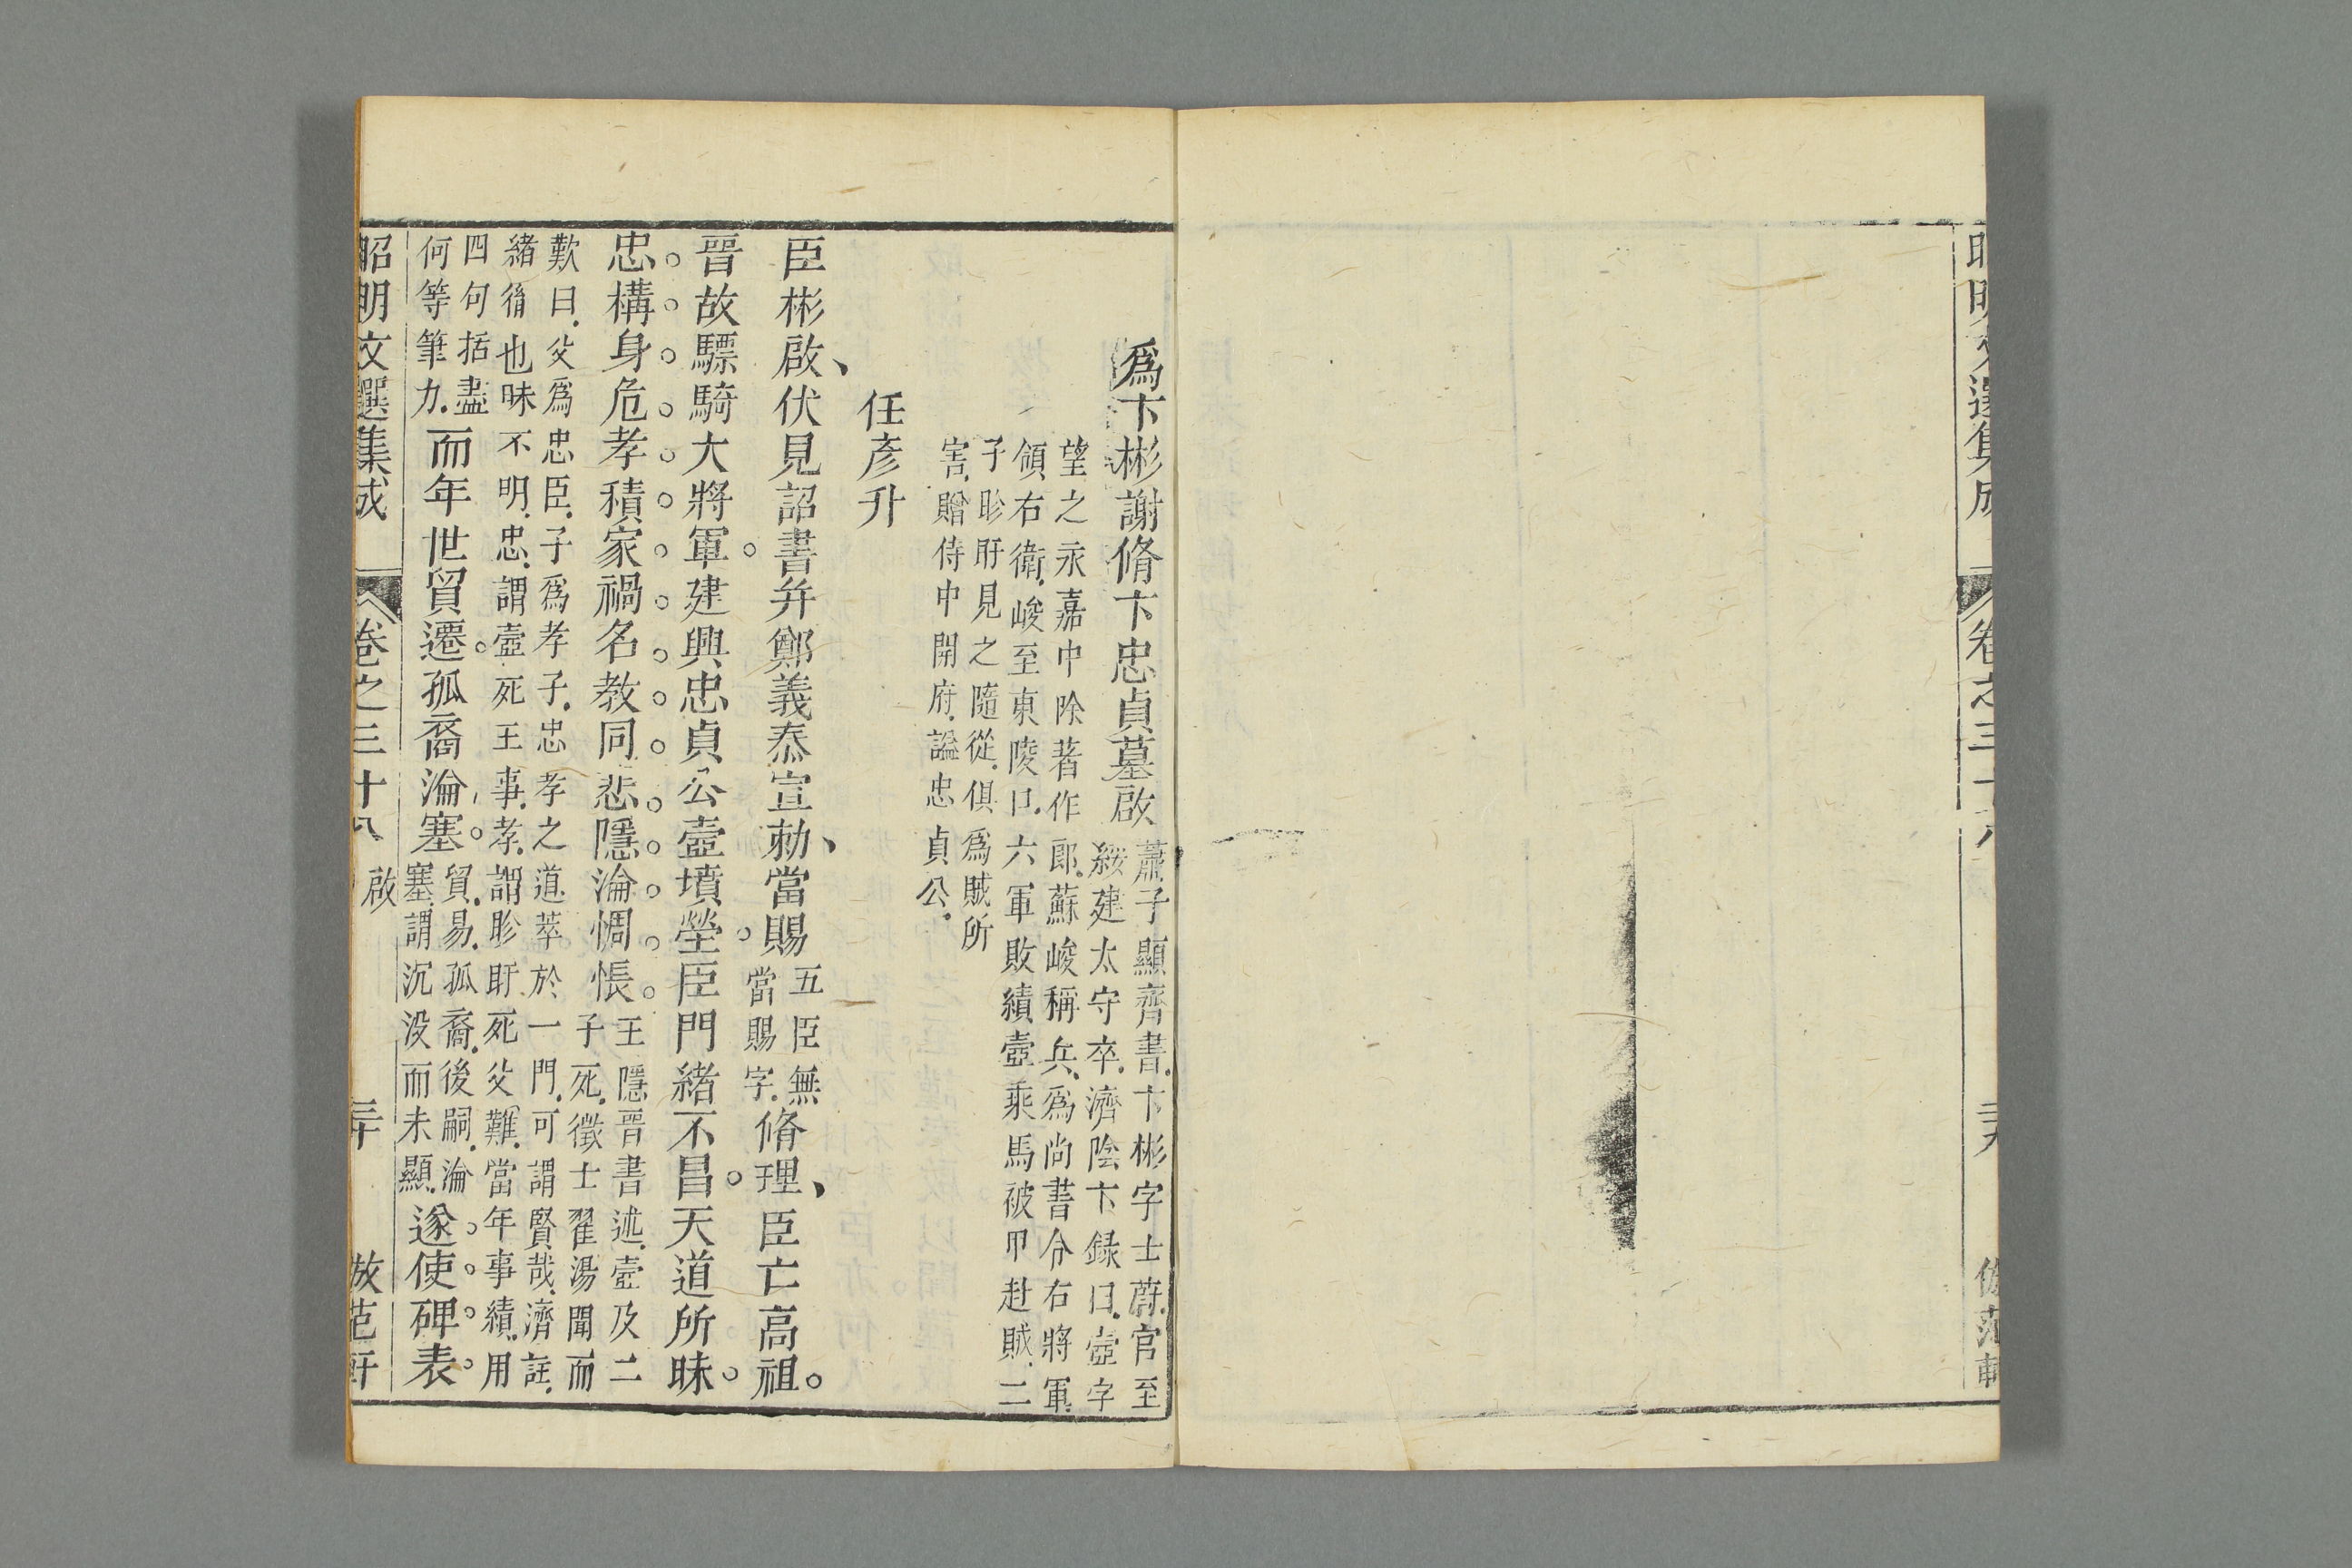 昭明文選集成　卷之三十八　　二十九　倣范軒
爲卞彬謝脩卞忠貞墓啟
蕭子顯齊書.卞彬字士蔚.官至
綏建太守卒.濟陰卞録曰.壼字
望之永嘉中除著作郎.蘇峻稱兵.爲尚書令右將軍.
領右衛.峻至東陵口.六軍敗績壼乘馬被甲赴賊.二
子眕盱見之隨從.俱爲賊所
害.贈侍中開府.謚忠貞公.
任彥升
臣彬啟、伏見詔書并鄭義泰宣勑、當賜
五臣無
當賜字.
脩理、臣亡高祖。
晉故驃騎大將軍。建興忠貞公壼墳塋。臣門緒不昌。天道所昧。
忠構身危孝積家禍名教同悲隱淪惆悵。
王隱晉書述.壼及二
子死.徵士翟湯聞而
歎曰.父爲忠臣.子爲孝子.忠孝之道.萃於一門.可謂賢哉.濟註.
緒 也昧不明.忠.謂壼死王事.孝.謂眕盱死父難.當年事績.用
四句括盡
何等筆力.
而年世貿遷。孤裔淪塞。
貿.易.孤裔.後嗣.淪
塞.謂沉没而未顯.
遂使碑表
昭明文選集成　卷之三十八　啟　三十　倣范軒